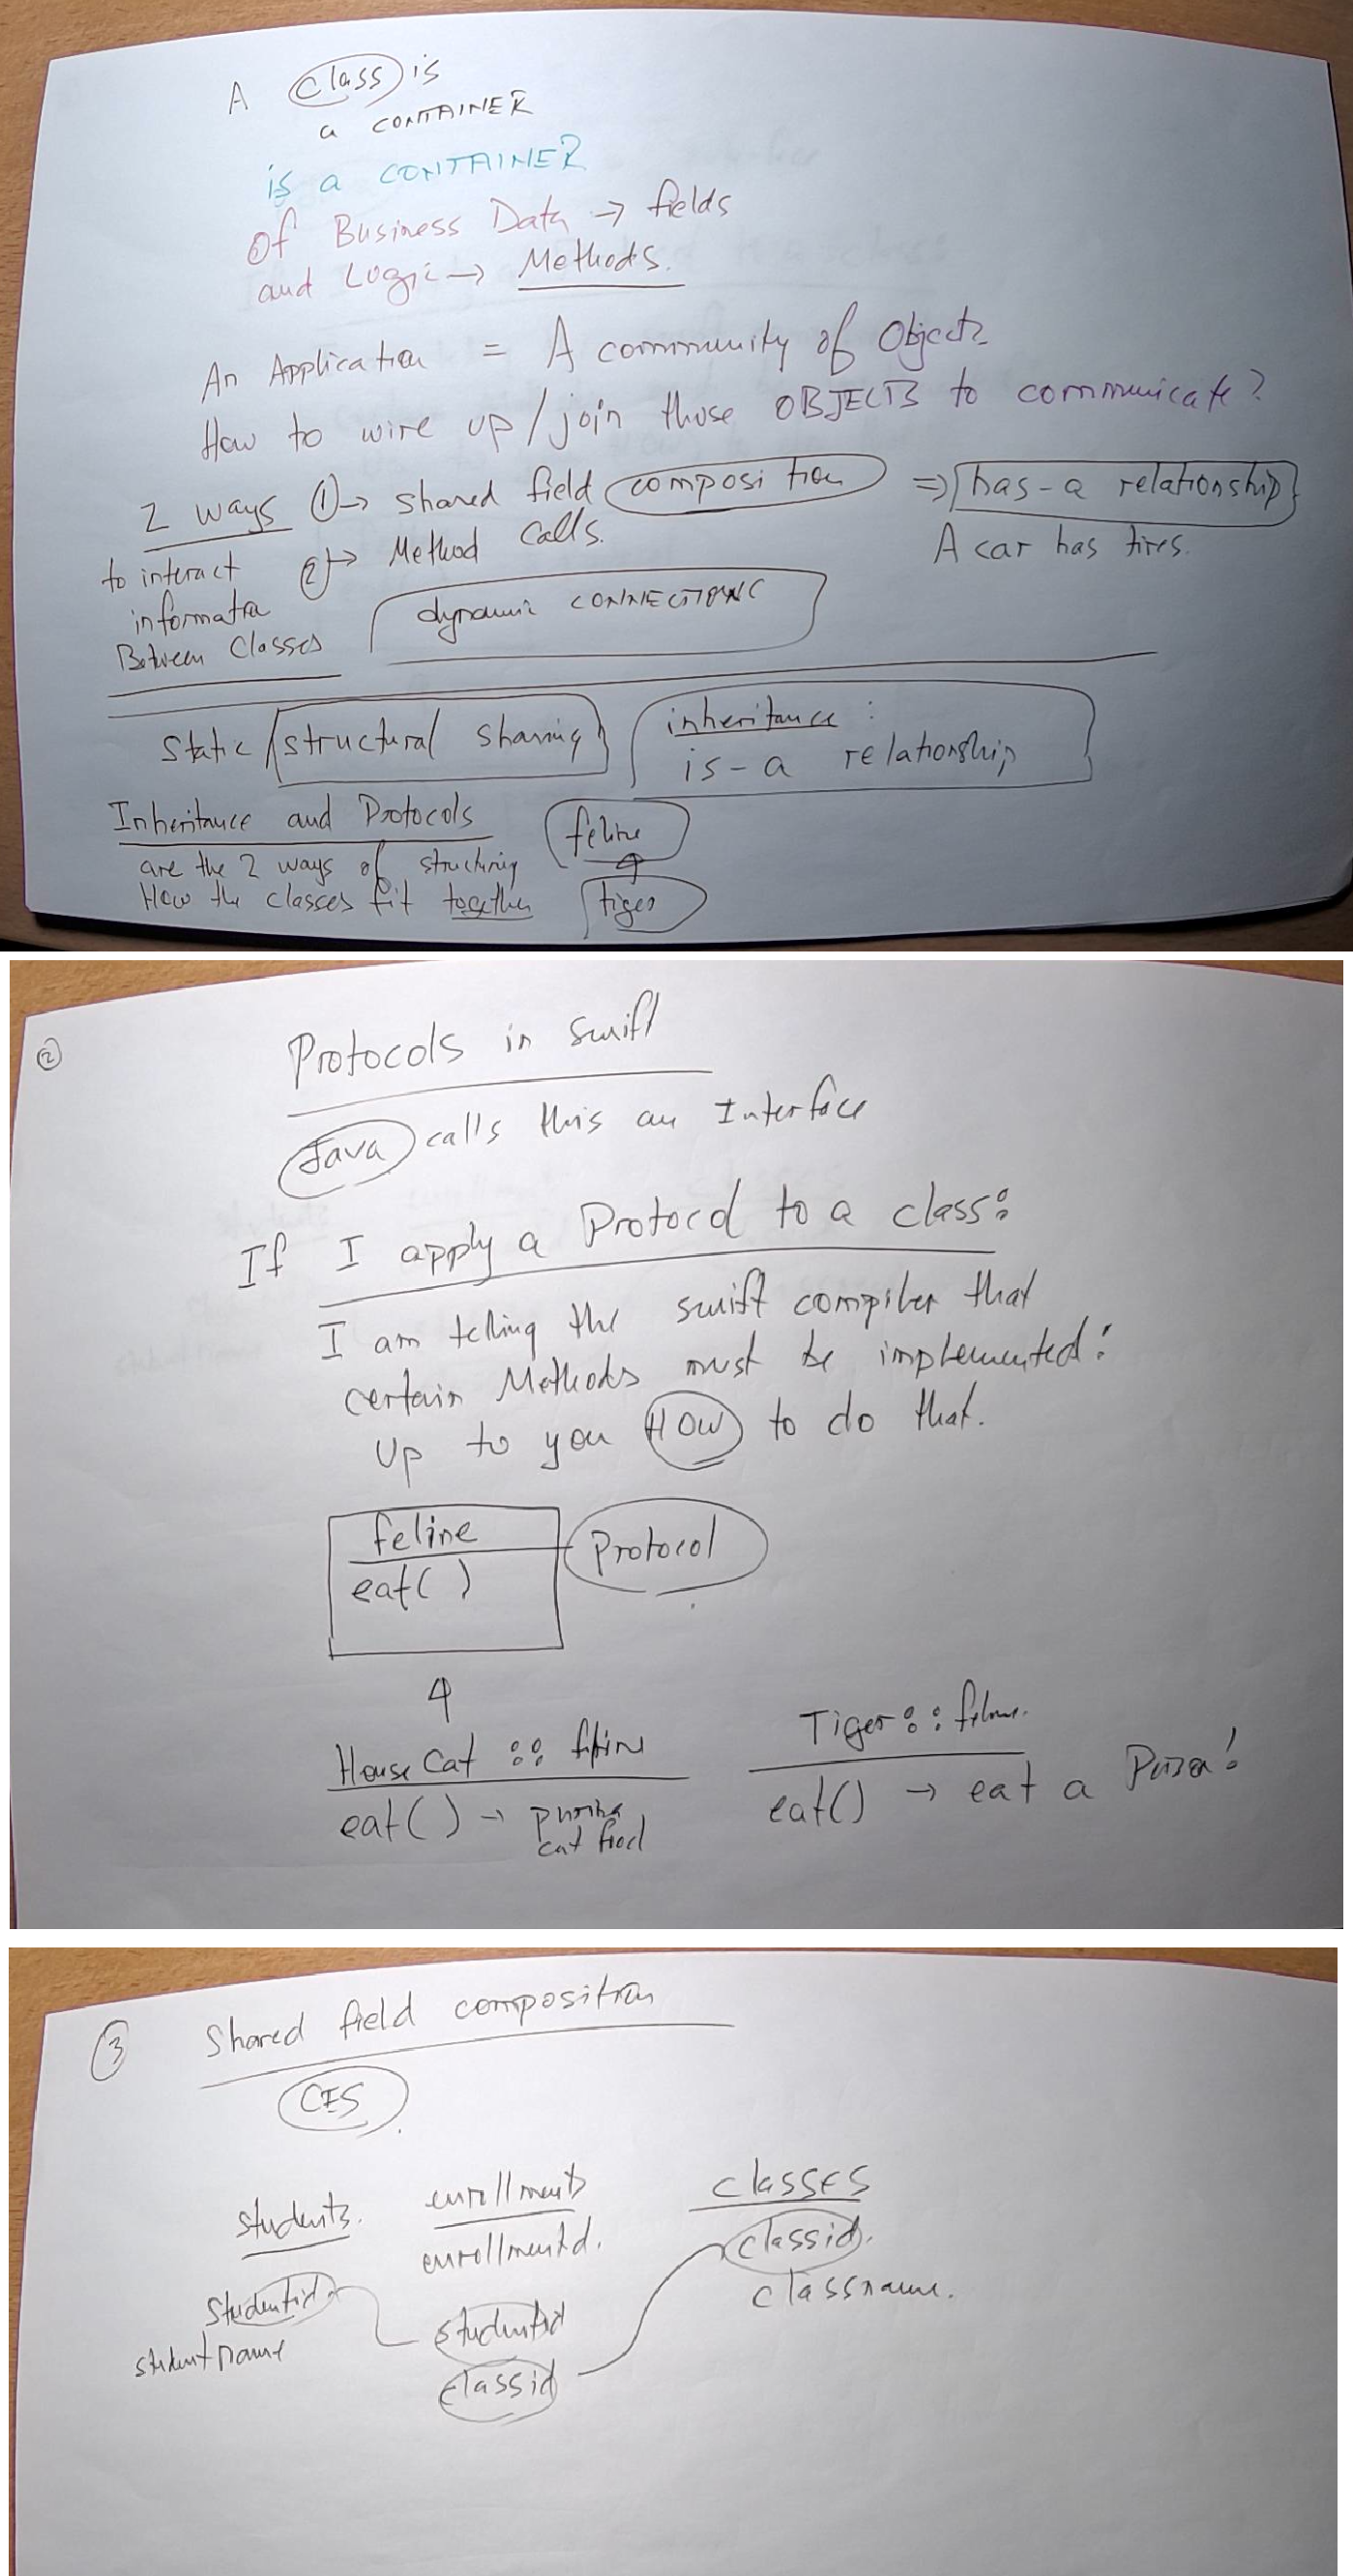 A class is
a CONTAINER
is a CONTAINER
of Business Data → fields
and Logic → Methods.
An Application = A community of Objects
How to wire up/join those OBJECTS to communicate?
2 ways ① → shared field composition ⇒ has-a relationship
to interact ② → Method calls. A car has tires.
informatra dynamic CONNECTIONS
Between Classes
Static/structural sharing inheritance:
is-a relationship
Inheritance and Protocols feline
are the 2 ways of structuring
How the classes fit together tiger
② Protocols in swift
Java calls this an Interface
If I apply a Protocol to a class:
I am telling the swift compiler that
certain Methods must be implemented:
up to you HOW to do that.
feline Protocol
eat()
House Cat :: feline Tiger :: feline.
eat() → purina eat() → eat a
cat food
③ Shared field composition
CES
students. enrollments classes
enrollmentid. classid.
studentid classname.
studentname studentid
classid